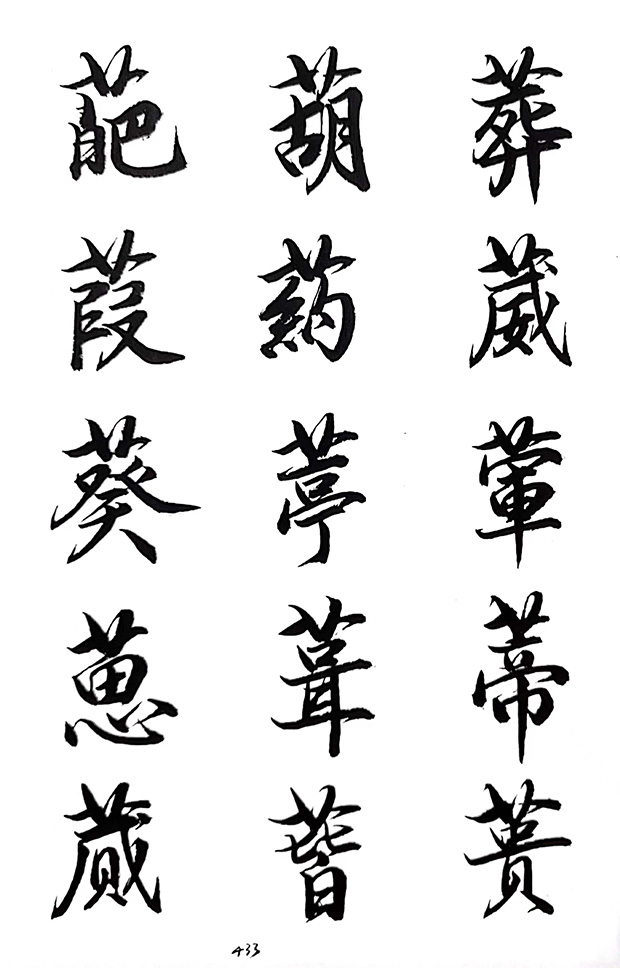 葩葫葬
葭葯葳
葵葶葷
葸葺蒂
蕆蒈蕢
433